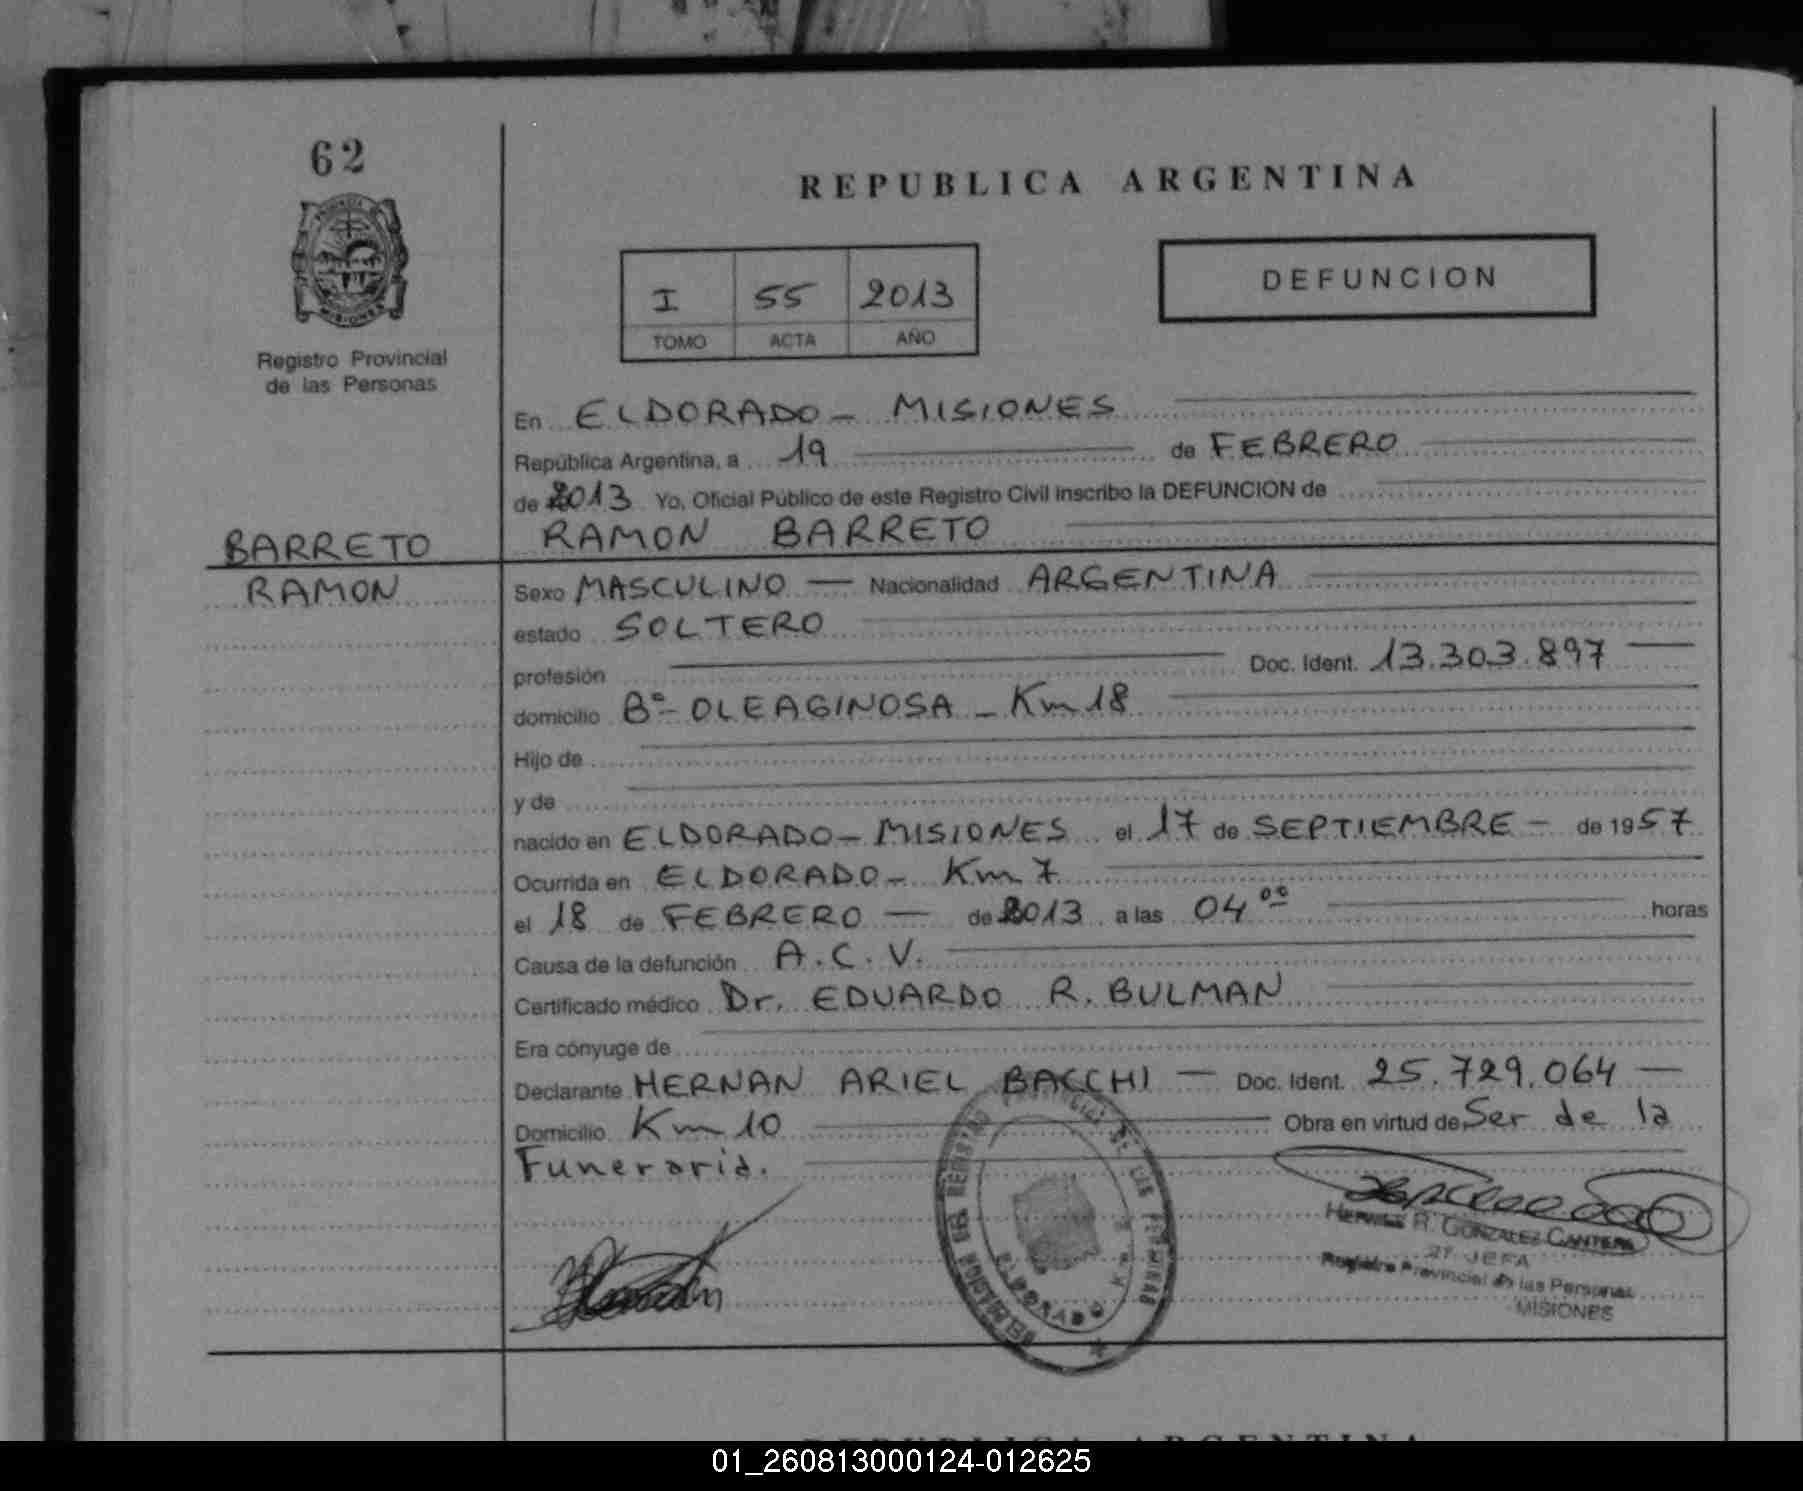 62
REPUBLICA ARGENTINA
PROVINCIA
MISIONES
Registro Provincial
de las Personas
I 55 2013
TOMO ACTA AÑO
DEFUNCION
En ELDORADO - MISIONES
República Argentina, a 19 de FEBRERO
de 2013 Yo, Oficial Público de este Registro Civil inscribo la DEFUNCION de
BARRETO RAMON BARRETO
RAMON Sexo MASCULINO — Nacionalidad ARGENTINA
estado SOLTERO
profesión Doc. Ident. 13.303.897 —
domicilio Bº- OLEAGINOSA - Km 18
Hijo de
y de
nacido en ELDORADO - MISIONES el 17 de SEPTIEMBRE - de 1957
Ocurrida en ELDORADO - Km 7
el 18 de FEBRERO — de 2013 a las 04 ºº horas
Causa de la defunción A.C.V.
Certificado médico Dr. EDUARDO R. BULMAN
Era cónyuge de
Declarante HERNAN ARIEL BACCHI — Doc. Ident. 25.729.064 —
Domicilio Km 10 Obra en virtud de Ser de la
Funeraria.
DELEGACION DEL REGISTRO PROVINCIAL DE LAS PERSONAS
ELDORADO
R. GONZALEZ CANTERO
JEFA
Registro Provincial de las Personas
MISIONES
REPUBLICA ARGENTINA
01_260813000124-012625